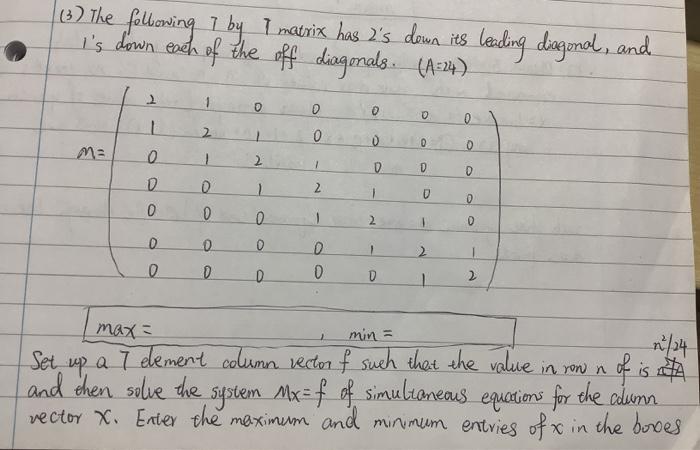 (3) The following 7 by 7 matrix has 2's down its leading diagonal, and
1's down each of the off diagonals. (A=24)
2 1 0 0 0 0 0
1 2 1 0 0 0 0
M= 0 1 2 1 0 0 0
0 0 1 2 1 0 0
0 0 0 1 2 1 0
0 0 0 0 1 2 1
0 0 0 0 0 1 2
max= , min =
n²/24
Set up a 7 element column vector f such that the value in row n of is
and then solve the system Mx=f of simultaneous equations for the column
vector X. Enter the maximum and minimum entries of x in the boxes